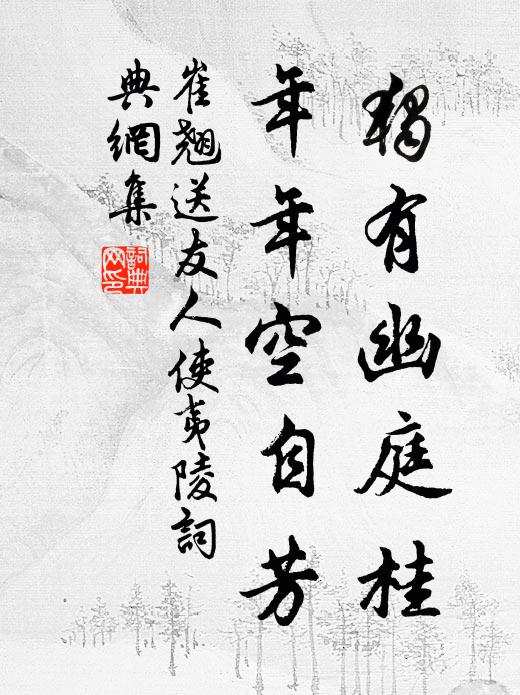 獨有幽庭桂
年年空自芳
崔翹送友人使夷陵詞
典網集
詞典網印